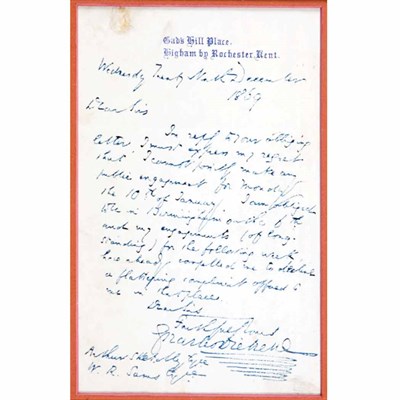 Gad's Hill Place,
Higham by Rochester, Kent.
Wednesday Twenty Ninth December
1869
Dear Sir
In reply to your obliging
letter, I must express my regret
that I cannot possibly make any
public engagement for Monday
the 10th of January. I am obliged
to be in Birmingham on the 6th
and my engagements (of long
standing) for the following week
have already compelled me to
a flattering compliment offered to
me in that place.
Dear Sir
Faithfully Yours
Charles Dickens
Arthur
W. R. Sams Esqre